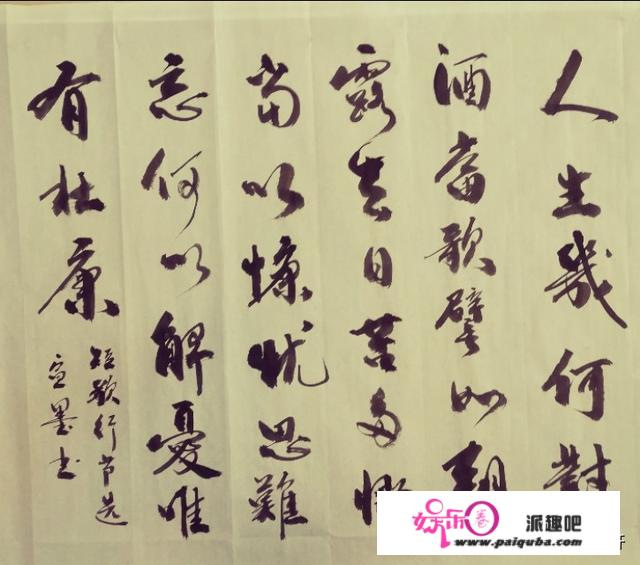 人生幾何對
酒當歌譬如朝
露去日苦多慨
当以慷忧思難
忘何以解憂唯
有杜康
短歌行节选
宣墨书
娱乐圈
派趣吧
www.paiquba.com